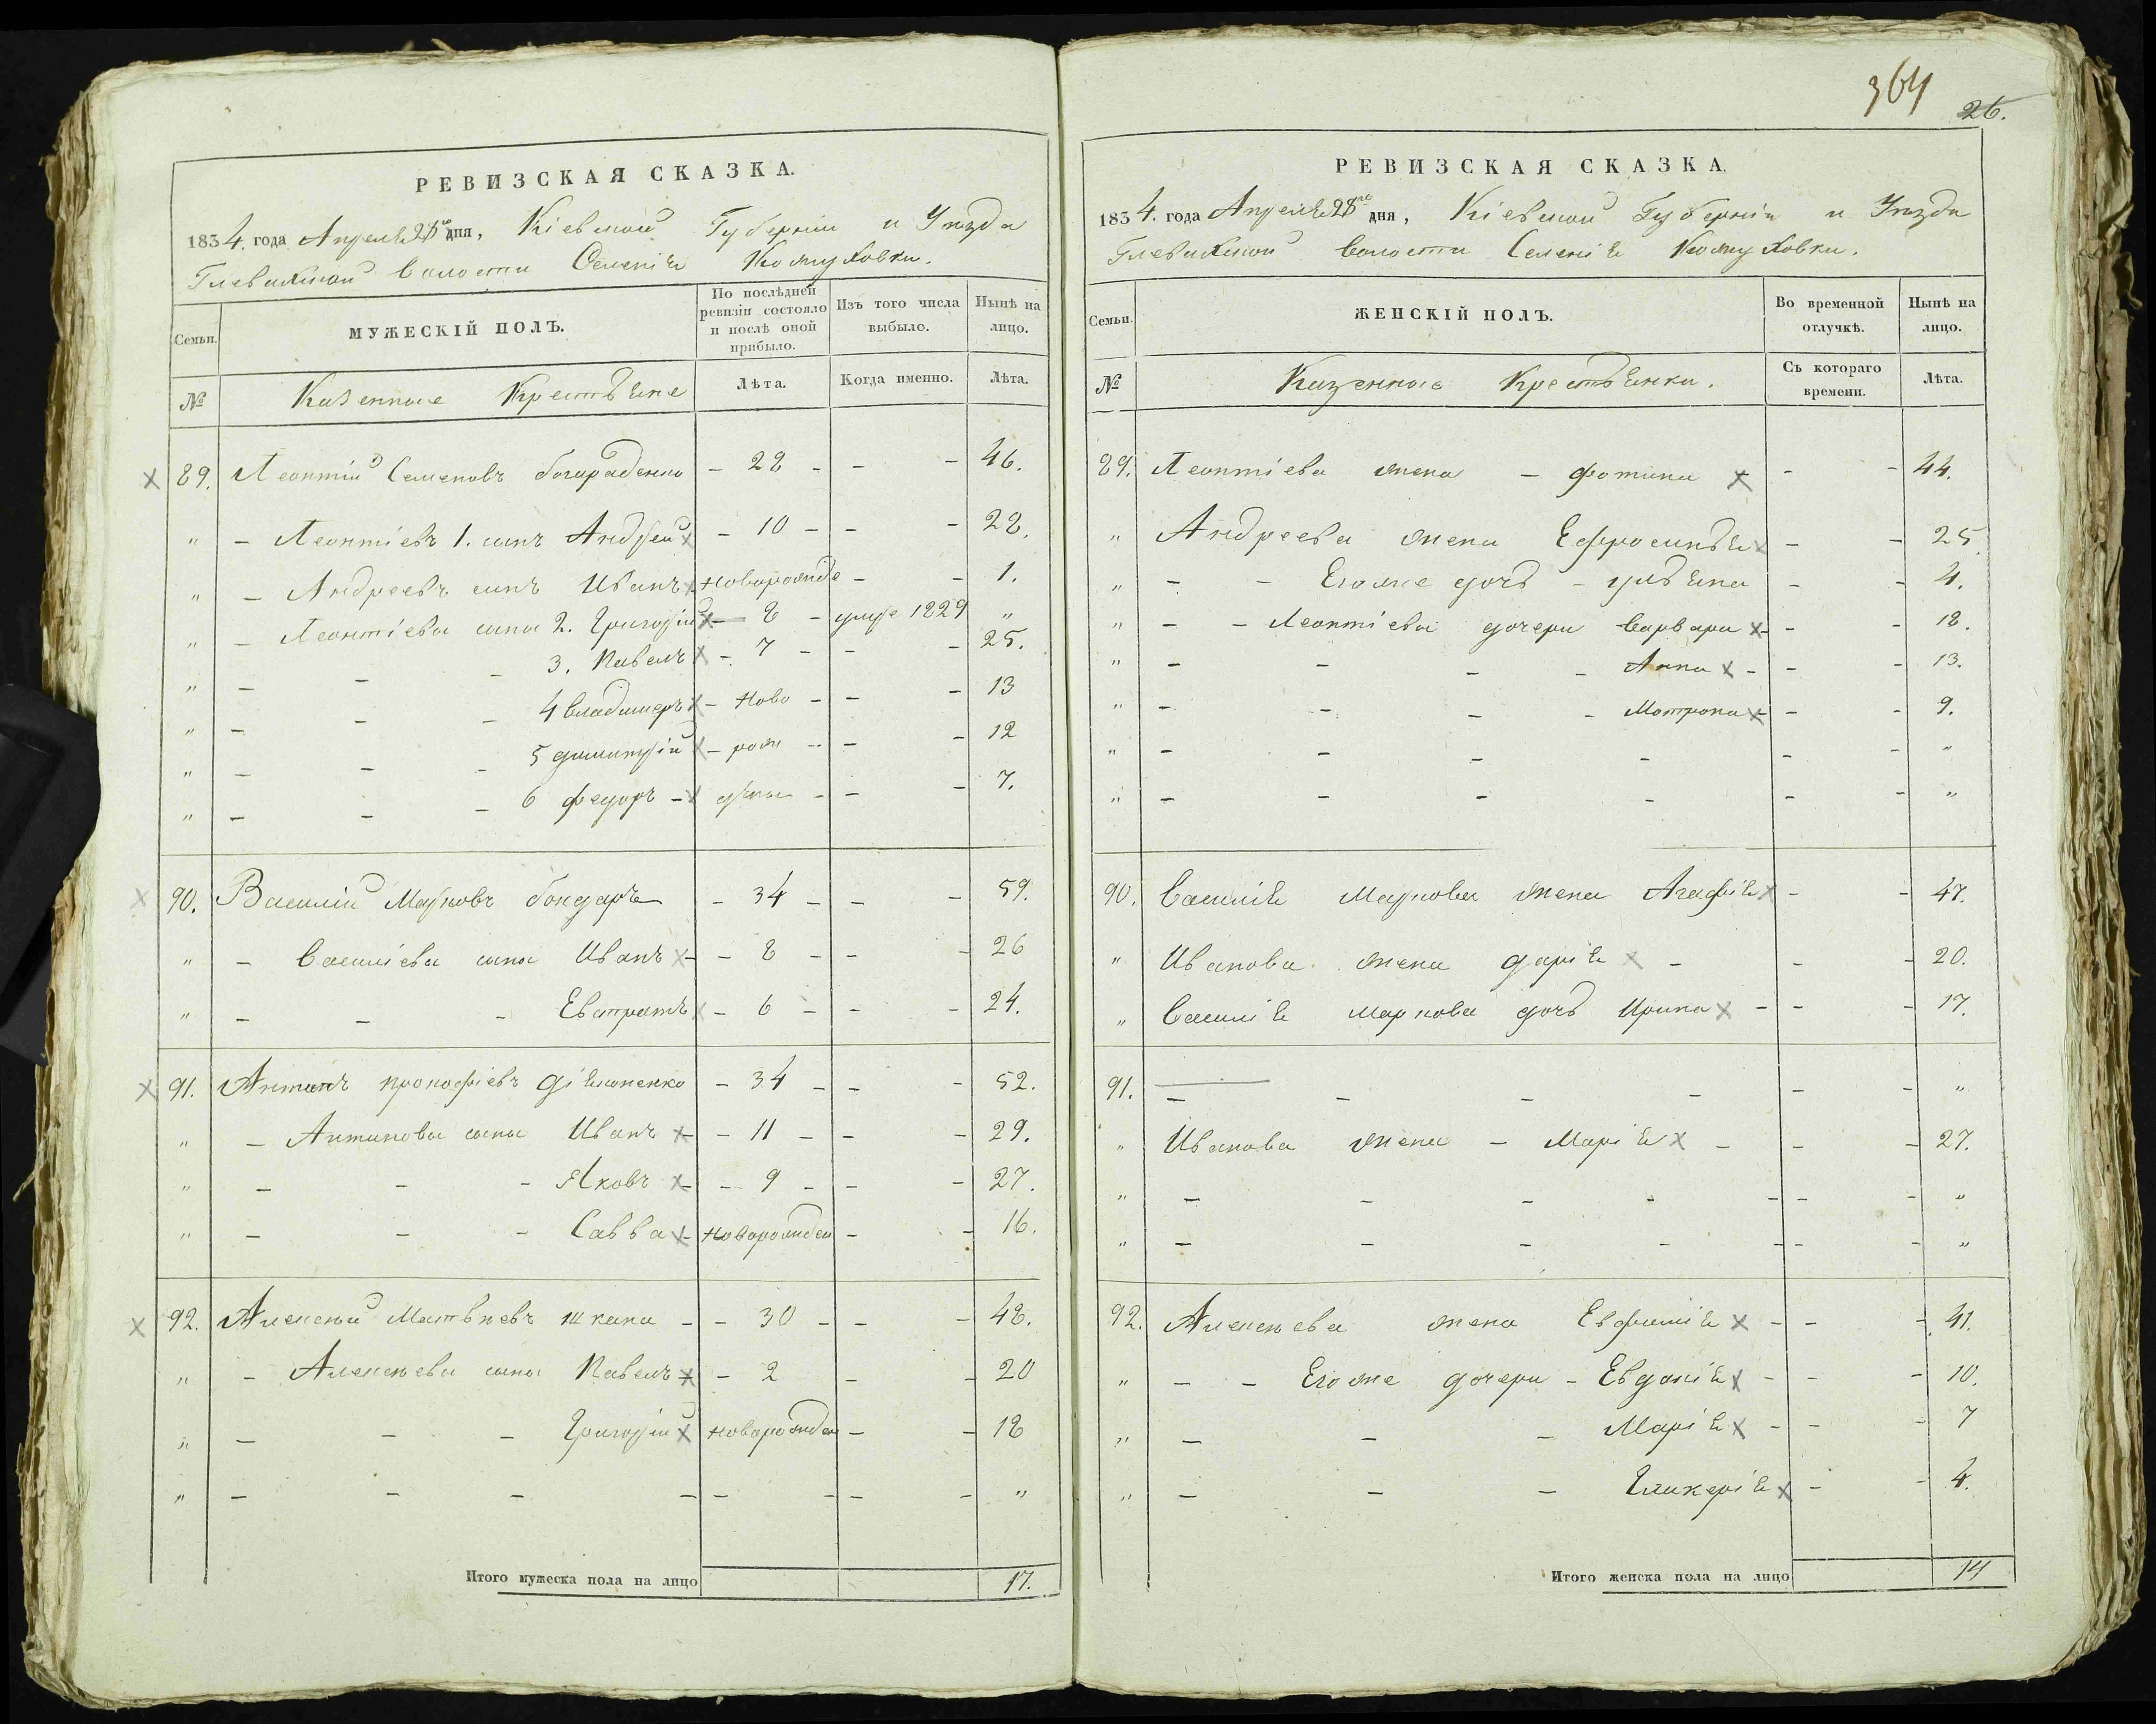 РЕВИЗСКАЯ СКАЗКА.
1834. года Апреля 28го дня, Кіевской Губерніи и Уѣзда
Глевахской Волости Селенія Кожуховки.
Семьи. МУЖЕСКІЙ ПОЛЪ. По послѣдней ревизіи состояло и послѣ оной прибыло. Изъ того числа выбыло. Нынѣ на лицо.
№ Казенные Крестьяне Лѣта. Когда именно. Лѣта.
89. Леонтій Семеновъ богораденко - 28 - - - 46.
" - Леонтіевъ 1. сынъ Андрей - 10 - - - 28.
" - Андреевъ сынъ Иванъ новорожде - - 1.
" - Леонтіевы сыны 2. Григорій - 8 - умре 1829 "
" - - - 3. Павелъ - 7 - - - 25.
" - - - 4 Владимеръ - Ново - - - 13
" - - - 5 димитрій - рож - - - 12
" - - - 6 федоръ - дены - - - 7.
90. Василій Марковъ бондарь - 34 - - - 59.
" - Василіевы сыны Иванъ - - 8 - - - 26
" - - - Евстратъ - 6 - - - 24.
91. Антипъ прокофіевъ діяконенко - 34 - - - 52.
" - Антиповы сыны Иванъ - - 11 - - - 29.
" - - - Яковъ - - 9 - - - 27.
" - - - Савва - новорожден - - 16.
92. Алексѣй Матвѣевъ шкапа - - 30 - - - 48.
" - Алексѣевы сыны Павелъ - 2 - - 20
" - - - Григорій новорожден - - 18
" - - - - - - - - "
Итого мужеска пола на лицо 17.
364
26.
РЕВИЗСКАЯ СКАЗКА.
1834. года Апреля 28го дня, Кіевской Губерніи и Уѣзда
Глевахской Волости Селенія Кожуховки.
Семьи. ЖЕНСКІЙ ПОЛЪ. Во временной отлучкѣ. Нынѣ на лицо.
№ Казенные Крестьянки. Съ котораго времени. Лѣта.
89. Леонтіева жена - фотина - - 44.
" Андреева жена Ефросинья - - 25.
" - - Егоже дочь - ульяна - - 4.
" - - Леонтіевы дочери Варвара - - - 18.
" - - - - Анна - - - 13.
" - - - - Мотрона - - - 9.
" - - - - - - "
" - - - - - - "
90. Василія Маркова жена Агафія - - 47.
" Иванова жена дарія - - - 20.
" Василія Маркова дочь Ирина - - - 17.
91. - - - - - - "
" Иванова жена - Марія - - - 27.
" - - - - - - - "
" - - - - - - - "
92. Алексѣева жена Евфимія - - - 41.
" - - Егоже дочери - Евдокія - - - 10.
" - - - Марія - - - 7
" - - - Гликерія - - 4.
Итого женска пола на лицо 14